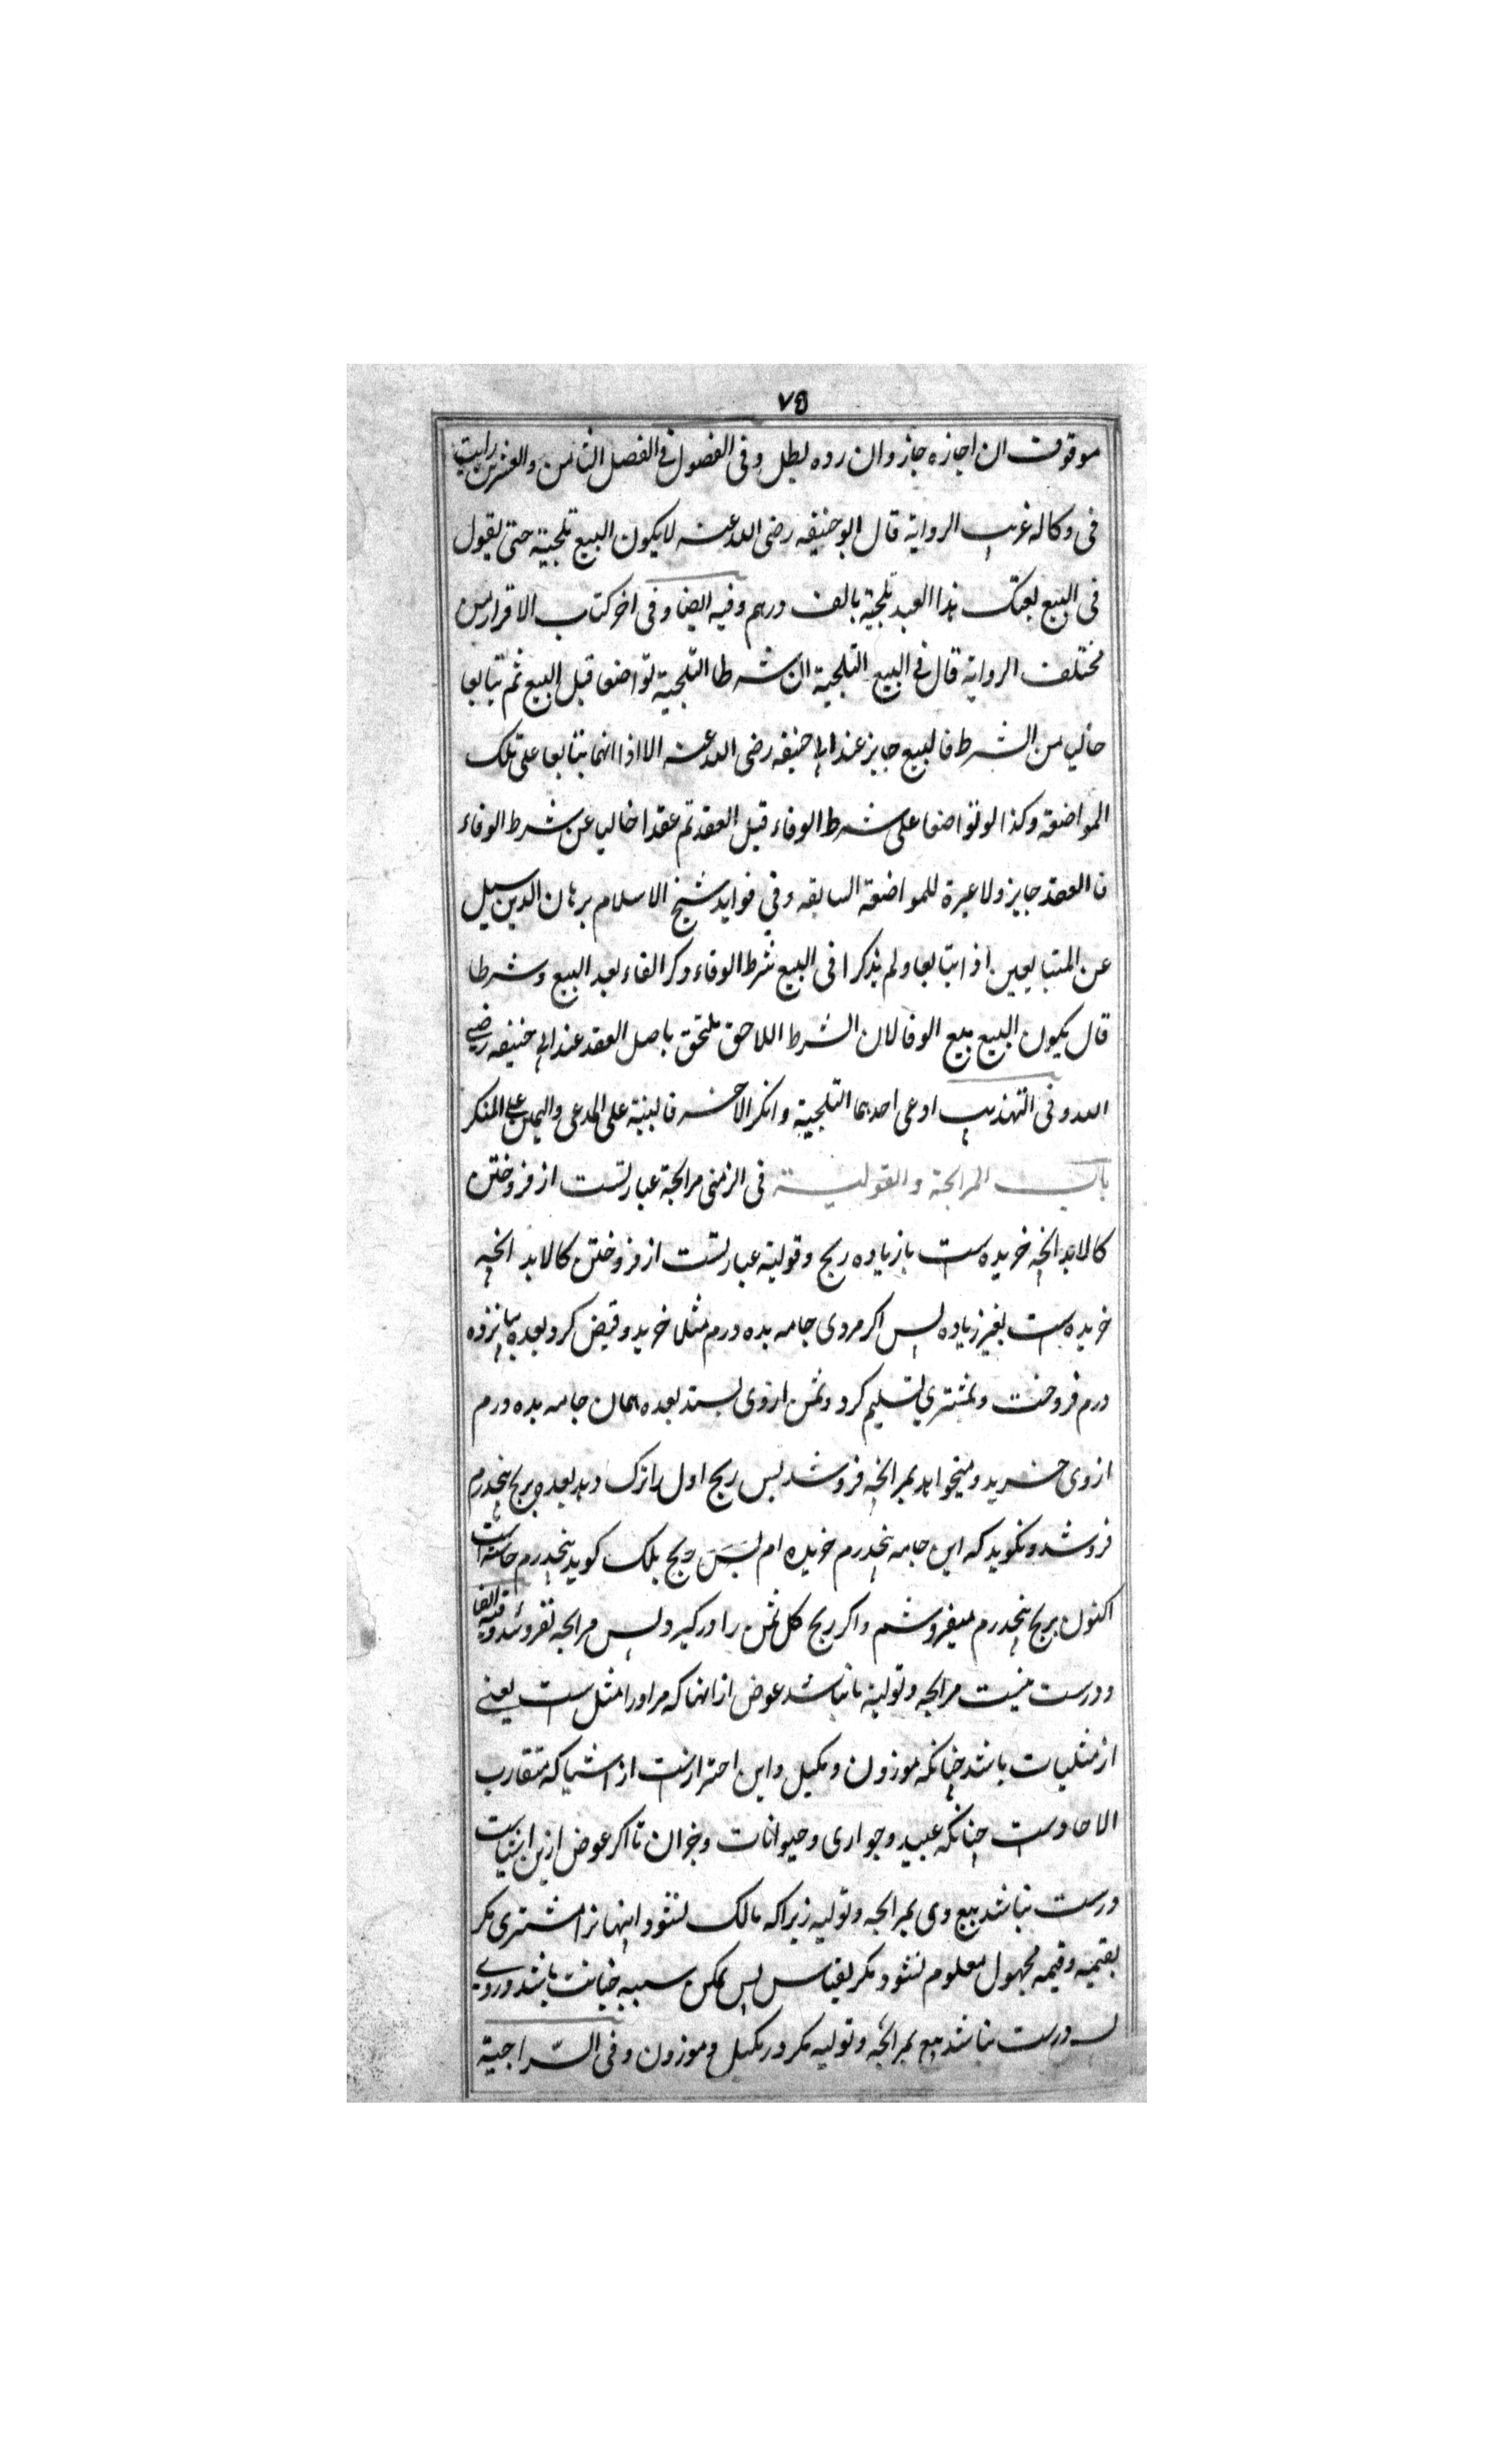 ٧٥
موقوف ان اجازه جاز وان رده بطل وفى الفصول فى الفصل الثامن والعشرين رايت
فى وكاله غريب الرواية قال ابو حنيفه رضى الله عنه لا يكون البيع تلجية حتى يقول
فى البيع بعتك هذا العبد تلجية بالف درهم وفيه ايضا وفى اخر كتاب الاقرار من
مختلف الرواية قال فى البيع التلجية ان شرطا التلجية تواضعا قبل البيع ثم تبايعا
خاليا من الشرط فالبيع جايز عند ابى حنيفه رضى الله عنه الا اذا انهما تبايعا على تلك
المواضعة وكذا لو تواضعا على شرط الوفاء قبل العقد ثم عقدا خاليا عن شرط الوفاء
فالعقد جايز ولا عبرة للمواضعة السابقه وفي فوايد شيخ الاسلام برهان الدين سيل
عن المتبايعين اذا تبايعا ولم يذكرا فى البيع شرط الوفاء وذكر الفاء بعد البيع وشرطا
قال يكون البيع بيع الوفا لان الشرط اللاحق ملتحق باصل العقد عند ابى حنيفه رضي
الله وفى التهذيب ادعى احدهما التلجية وانكر الاخر فالبينة على المدعى واليمين على المنكر
باب المرابحة والتولية فى الزمنى مرابحة عبارتست از فروختن
كالا بدانچه خريده ست بازياده ربح وتولية عبارتست از فروختن كالا بدانچه
خريده ست بغير زياده پس اكر مردى جامه بده درم مثلا خريد وقبض كرد بعده بپانزده
درم فروخت وبمشتري تسليم كرد وثمن ازوى بستد بعده همان جامه بده درم
ازوى خريد وميخواهد بمرابحه فروشد پس ربح اول را ترك دهد بعده بربح پنجدرم
فروشد ونكويد كه اين جامه پنجدرم خريده ام پس ربح بلك كويد پنجدرم خاسته است
اكنون بربح پنجدرم ميفروشم واكر ربح كل ثمن را دركيرد پس مرابحه نفروشد وفيه ايضا
ودرست نيست مرابحه وتولية تا نباشد عوض ازانها كه مر اورا مثل ست يعنے
از مثليات باشد چنانكه موزون ومكيل واين احترازست از اشيا كه متقارب
الاحادست چنانكه عبيد وجوارى وحيوانات وجزان تا اكر عوض ازين اشياست
درست نباشد بيع وى بمرابحه وتوليه زيراكه مالك نشود اينهارا مشترى مكر
بقيميه وقيمه مجهول معلوم نشود مكر بقياس پس ممكن سببه خيانت باشد دروے
پس درست نباشد بيع بمرابحه وتوليه مكر در مكيل وموزون وفى السراجية